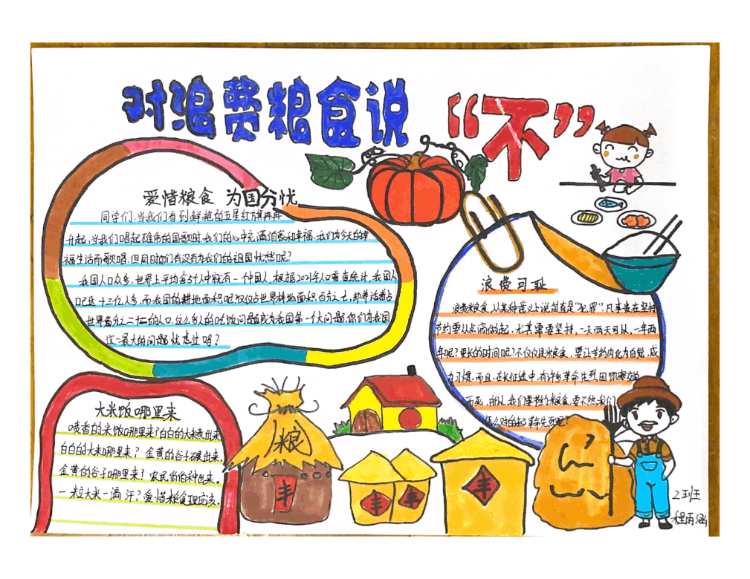 对浪费粮食说“不”
爱惜粮食 为国分忧
同学们,当我们看到鲜艳的五星红旗冉冉
升起,当我们唱起雄伟的国歌时,我们的心中充满自豪和幸福,我们为今天的幸
福生活而歌唱,但同时你们有没有为我们的祖国忧愁呢?
我国人口众多,世界上平均每五个人中就有一个中国人,根据2021年人口普查统计,我国人
口已是十三亿人多,而我国的耕地面积呢?仅仅占世界耕地面积百分之七,却养活着占
世界百分之二十二的人口,这么多人的吃饭问题成为我国第一个大问题,你们为我国
这一最大的问题忧虑过吗?
浪费可耻
浪费粮食,从某种意义上说就是“犯罪”,凡事贵在坚持
节约要从点滴做起,尤其需要坚持,一天两天可以,一年两
年呢?更长的时间呢?不仅仅是粮食,要让节约内化为自觉,成
为习惯
大米饭哪里来
喷香的米饭哪里来?白白的大米煮出来,
白白的大米哪里来?金黄的谷子碾出来,
金黄的谷子哪里来?农民伯伯种出来,
一粒大米一滴汗?爱惜粮食理应该,
粮
丰
丰
丰
丰
2班